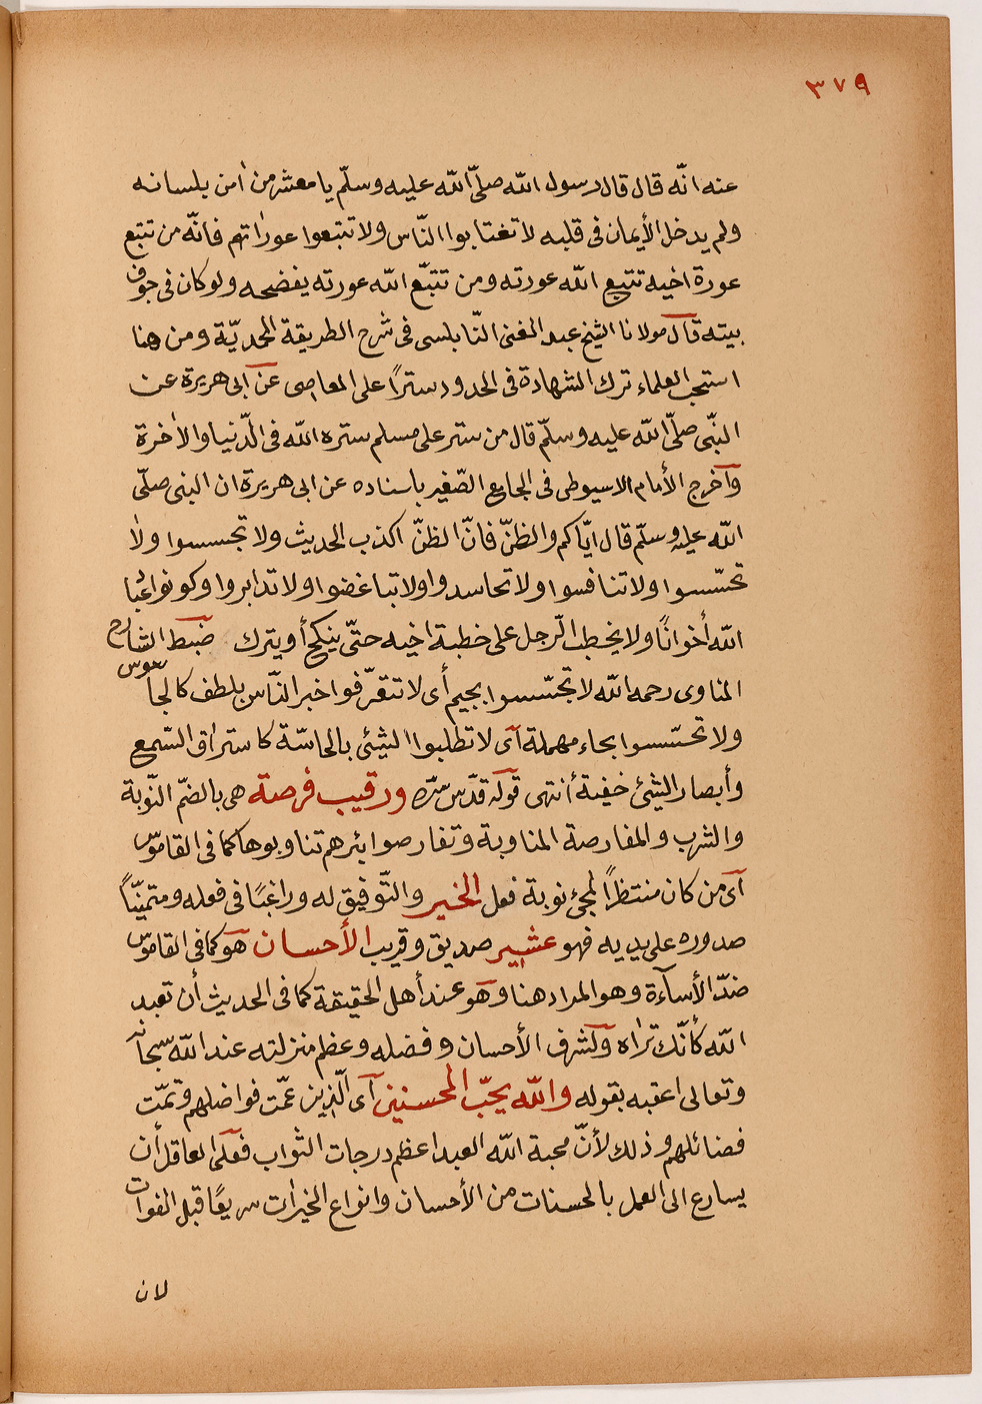 ٣٧٩
عنه انّه قال قال رسول الله صلّى الله عليه وسلّم يا معشر من اٰمن بلسانه
ولم يدخل الأيمان فى قلبه لا تغتابوا النّاس ولا تتبعوا عوراتهم فانّه من تتبع
عورة اخيه تتبع الله عورته ومن تتبّع الله عورته يفضحه ولو كان فى جوف
بيته قال مولانا الشيخ عبد الغنى النّابلسى فى شرح الطريقة المحمديّة ومن هنا
استحب العلماء ترك الشهادة فى الحدود ستراً على المعاصى عن ابى هريرة عن
النبّى صلّى الله عليه وسلّم قال من ستر على مسلم ستره الله فى الدّنيا والاٰخرة
وآخرج الأمام الاسيوطى فى الجامع الصّغير باسناده عن ابى هريرة ان النبى صلّى
الله عليه وسلّم قال ايّاكم والظنّ فانّ الظنّ اكذب الحديث ولا تجسسوا ولا
تحسّسوا ولا تنافسوا ولا تحاسدوا ولا تباغضوا ولا تدابروا وكونوا عباد
الله أخوانًا ولا يخطب الّرجل على خطبة اخيه حتّى ينكح أو يترك ضبط الشارح
المناوى رحمه الله لا تجسّسوا بجيم أى لا تتعرّفوا خبر النّاس بلطف كالجاسوس
ولا تحسّسوا بحاء مهملة آى لا تطلبوا الشيئ بالحاسّة كاستراق السّمع
وأبصار الشيئ خفية أنتهى قوله قدّس سّره ورقيب فرصة هى بالضمّ النّوبة
والشرب والمفارصة المناوبة وتفارصوا بئرهم تناوبوها كما فى القاموّس
آى من كان منتظراً لمجئ نوبة فعل الخير والتّوفيق له وراغبًا فى فعله ومتمنّياً
صدوره على يديه فهو عشير صديق وقريب الأحسان هو كما فى القاموّس
ضدّ الأسآءة وهو المراد هنا وهو عند أهل الحقيقة كما فى الحديث أن تعبد
الله كأنّك تراه ولشرف الأحسان وفضله وعظم منزلته عند الله سبحانه
وتعالى اعقبه بقوله والله يحبّ المحسنين آى الّذين عمّت فواضلهم وتمّت
فضائلهم وذلك لأنّ محبة الله العبد اعظم درجات الثواب فعلى العاقل أن
يسارع الى العمل بالحسنات من الأحسان وانواع الخيرات سريعًا قبل الفوات
لان